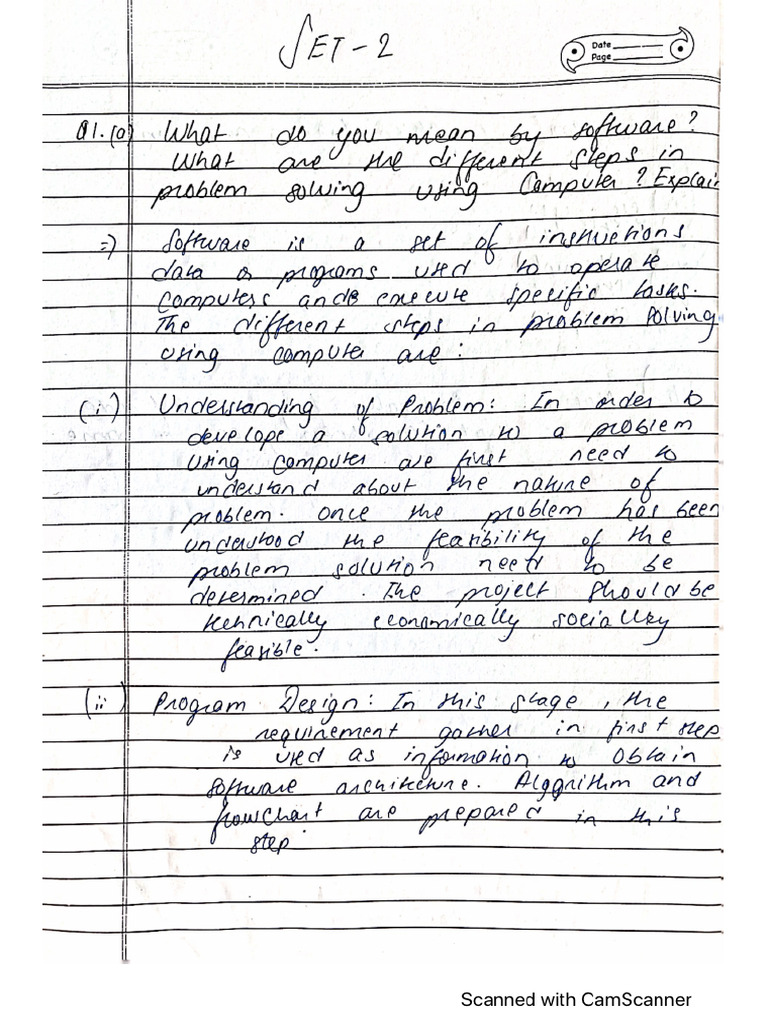 SET-2
Date
Page
Q1.(a) What do you mean by software?
What are the different steps in
problem solving using Computer? Explain
=) Software is a set of instructions
data or programs used to operate
computers and execute specific tasks.
The different steps in problem solving
using computer are:
(i) Understanding of Problem: In order to
develope a solution to a problem
using computer are first need to
understand about the nature of
problem. Once the problem has been
understood the feasibility of the
problem solution need to be
determined. The project should be
technically economically socially
feasible.
(ii) Program Design: In this stage, the
requirement gather in first step
is used as information to obtain
software architecture. Algorithm and
flowchart are prepared in this
step.
Scanned with CamScanner